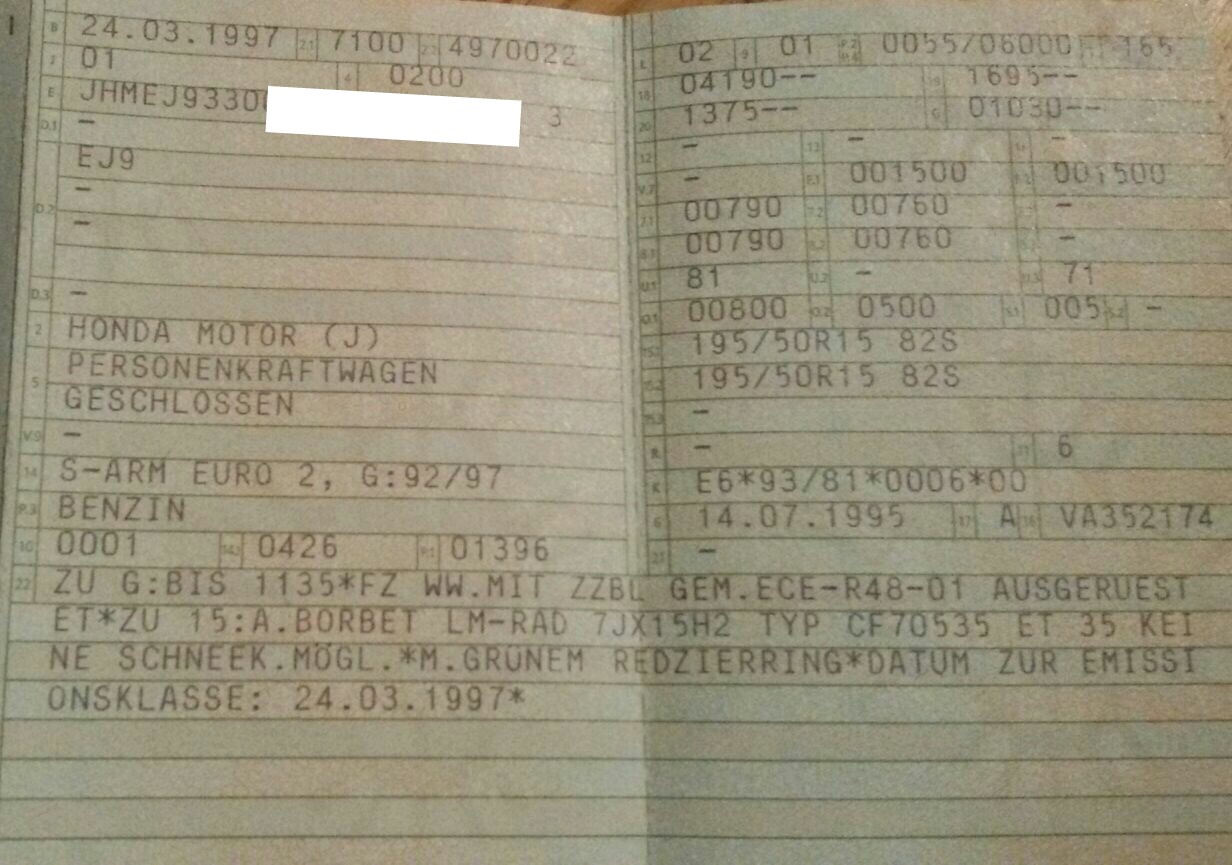 B 24.03.1997 2.1 7100 2.2 4970022
J 01 4 0200
E JHMEJ9330 3
D.1 -
EJ9
-
D.2 -
D.3 -
2 HONDA MOTOR (J)
5 PERSONENKRAFTWAGEN
GESCHLOSSEN
V.9 -
14 S-ARM EURO 2, G:92/97
P.3 BENZIN
10 0001 14.1 0426 P.1 01396
L 02 9 01 P.2 P.4 0055/06000 T 165
18 04190-- 19 1695--
20 1375-- G 01030--
12 - 13 - -
V.7 - F.1 001500 F.2 001500
7.1 00790 7.2 00760 7.3 -
8.1 00790 8.2 00760 8.3 -
U.1 81 U.2 - U.3 71
O.1 00800 O.2 0500 S.1 005 S.2 -
15.1 195/50R15 82S
15.2 195/50R15 82S
15.3 -
R - 11 6
K E6*93/81*0006*00
6 14.07.1995 17 A 16 VA352174
21 -
22 ZU G:BIS 1135*FZ WW.MIT ZZBL GEM.ECE-R48-01 AUSGERUEST
ET*ZU 15:A.BORBET LM-RAD 7JX15H2 TYP CF70535 ET 35 KEI
NE SCHNEEK.MÖGL.*M.GRÜNEM REDZIERRING*DATUM ZUR EMISSI
ONSKLASSE: 24.03.1997*